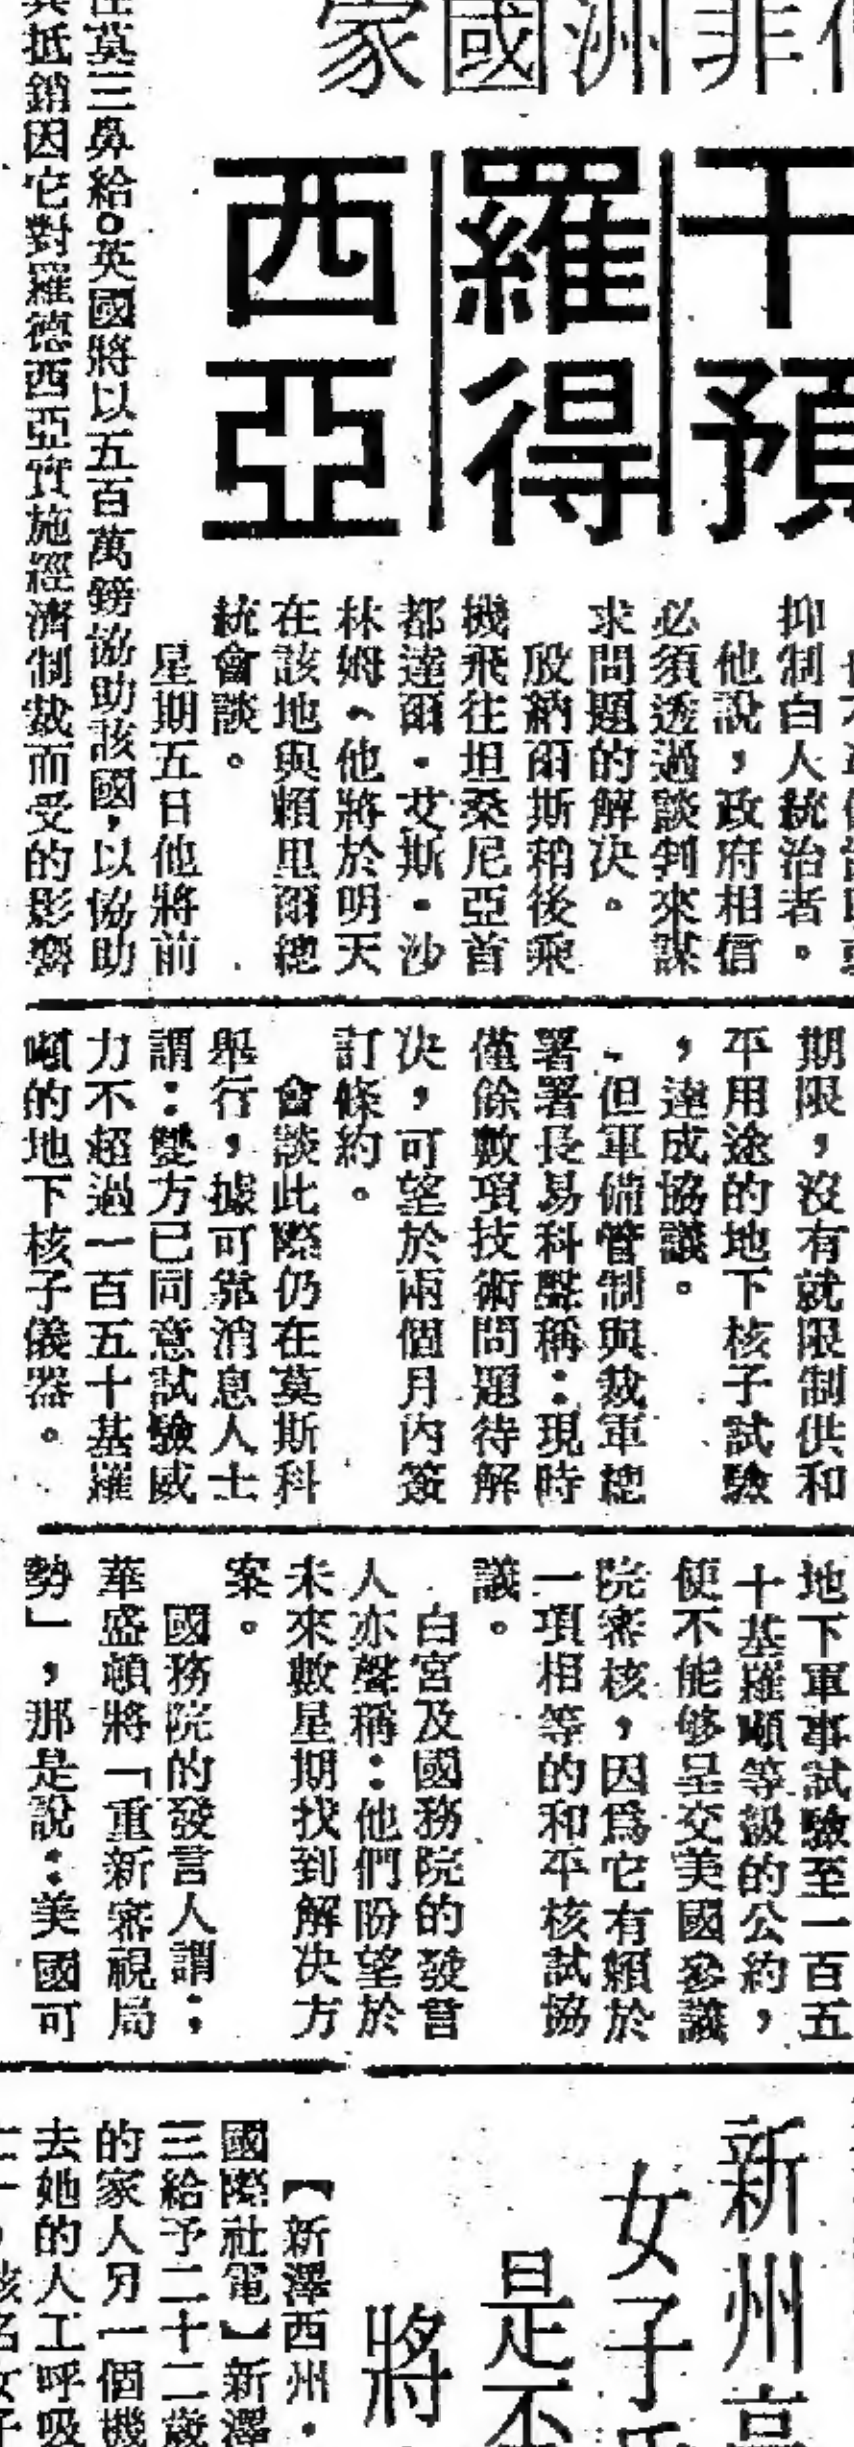 非洲國家
干預
羅得
西亞
抑制白人統治者。
他說，政府相信
必須透過談判來謀
求問題的解决。
殷納爾斯稍後乘
機飛往坦桑尼亞首
都達爾·艾斯·沙
林姆、他將於明天
在該地與賴里爾總
統會談。
星期五日他將前
莫三鼻給。英國將以五百萬鎊協助該國，以協助
抵銷因它對羅德西亞實施經濟制裁而受的影響
期限，沒有就限制供和
平用途的地下核子試驗
，達成協議。
但軍備管制與裁軍總
署署長易科聲稱：現時
僅餘數項技術問題待解
决，可望於兩個月內簽
訂條約。
會談此際仍在莫斯科
舉行，據可靠消息人士
謂：雙方已同意試驗威
力不超過一百五十基羅
噸的地下核子儀器。
地下軍事試驗至一百五
十基羅噸等級的公約，
便不能够呈交美國參議
院審核，因爲它有賴於
一項相等的和平核試協
議。
白宮及國務院的發言
人亦聲稱：他們盼望於
未來數星期找到解决方
案。
國務院的發言人謂：
華盛頓將「重新審視局
勢」，那是說：美國可
新州高
女子
是否
將
【新澤西州·
國際社電】新澤
三給予二十二歲
的家人另一個機
去她的人工呼吸